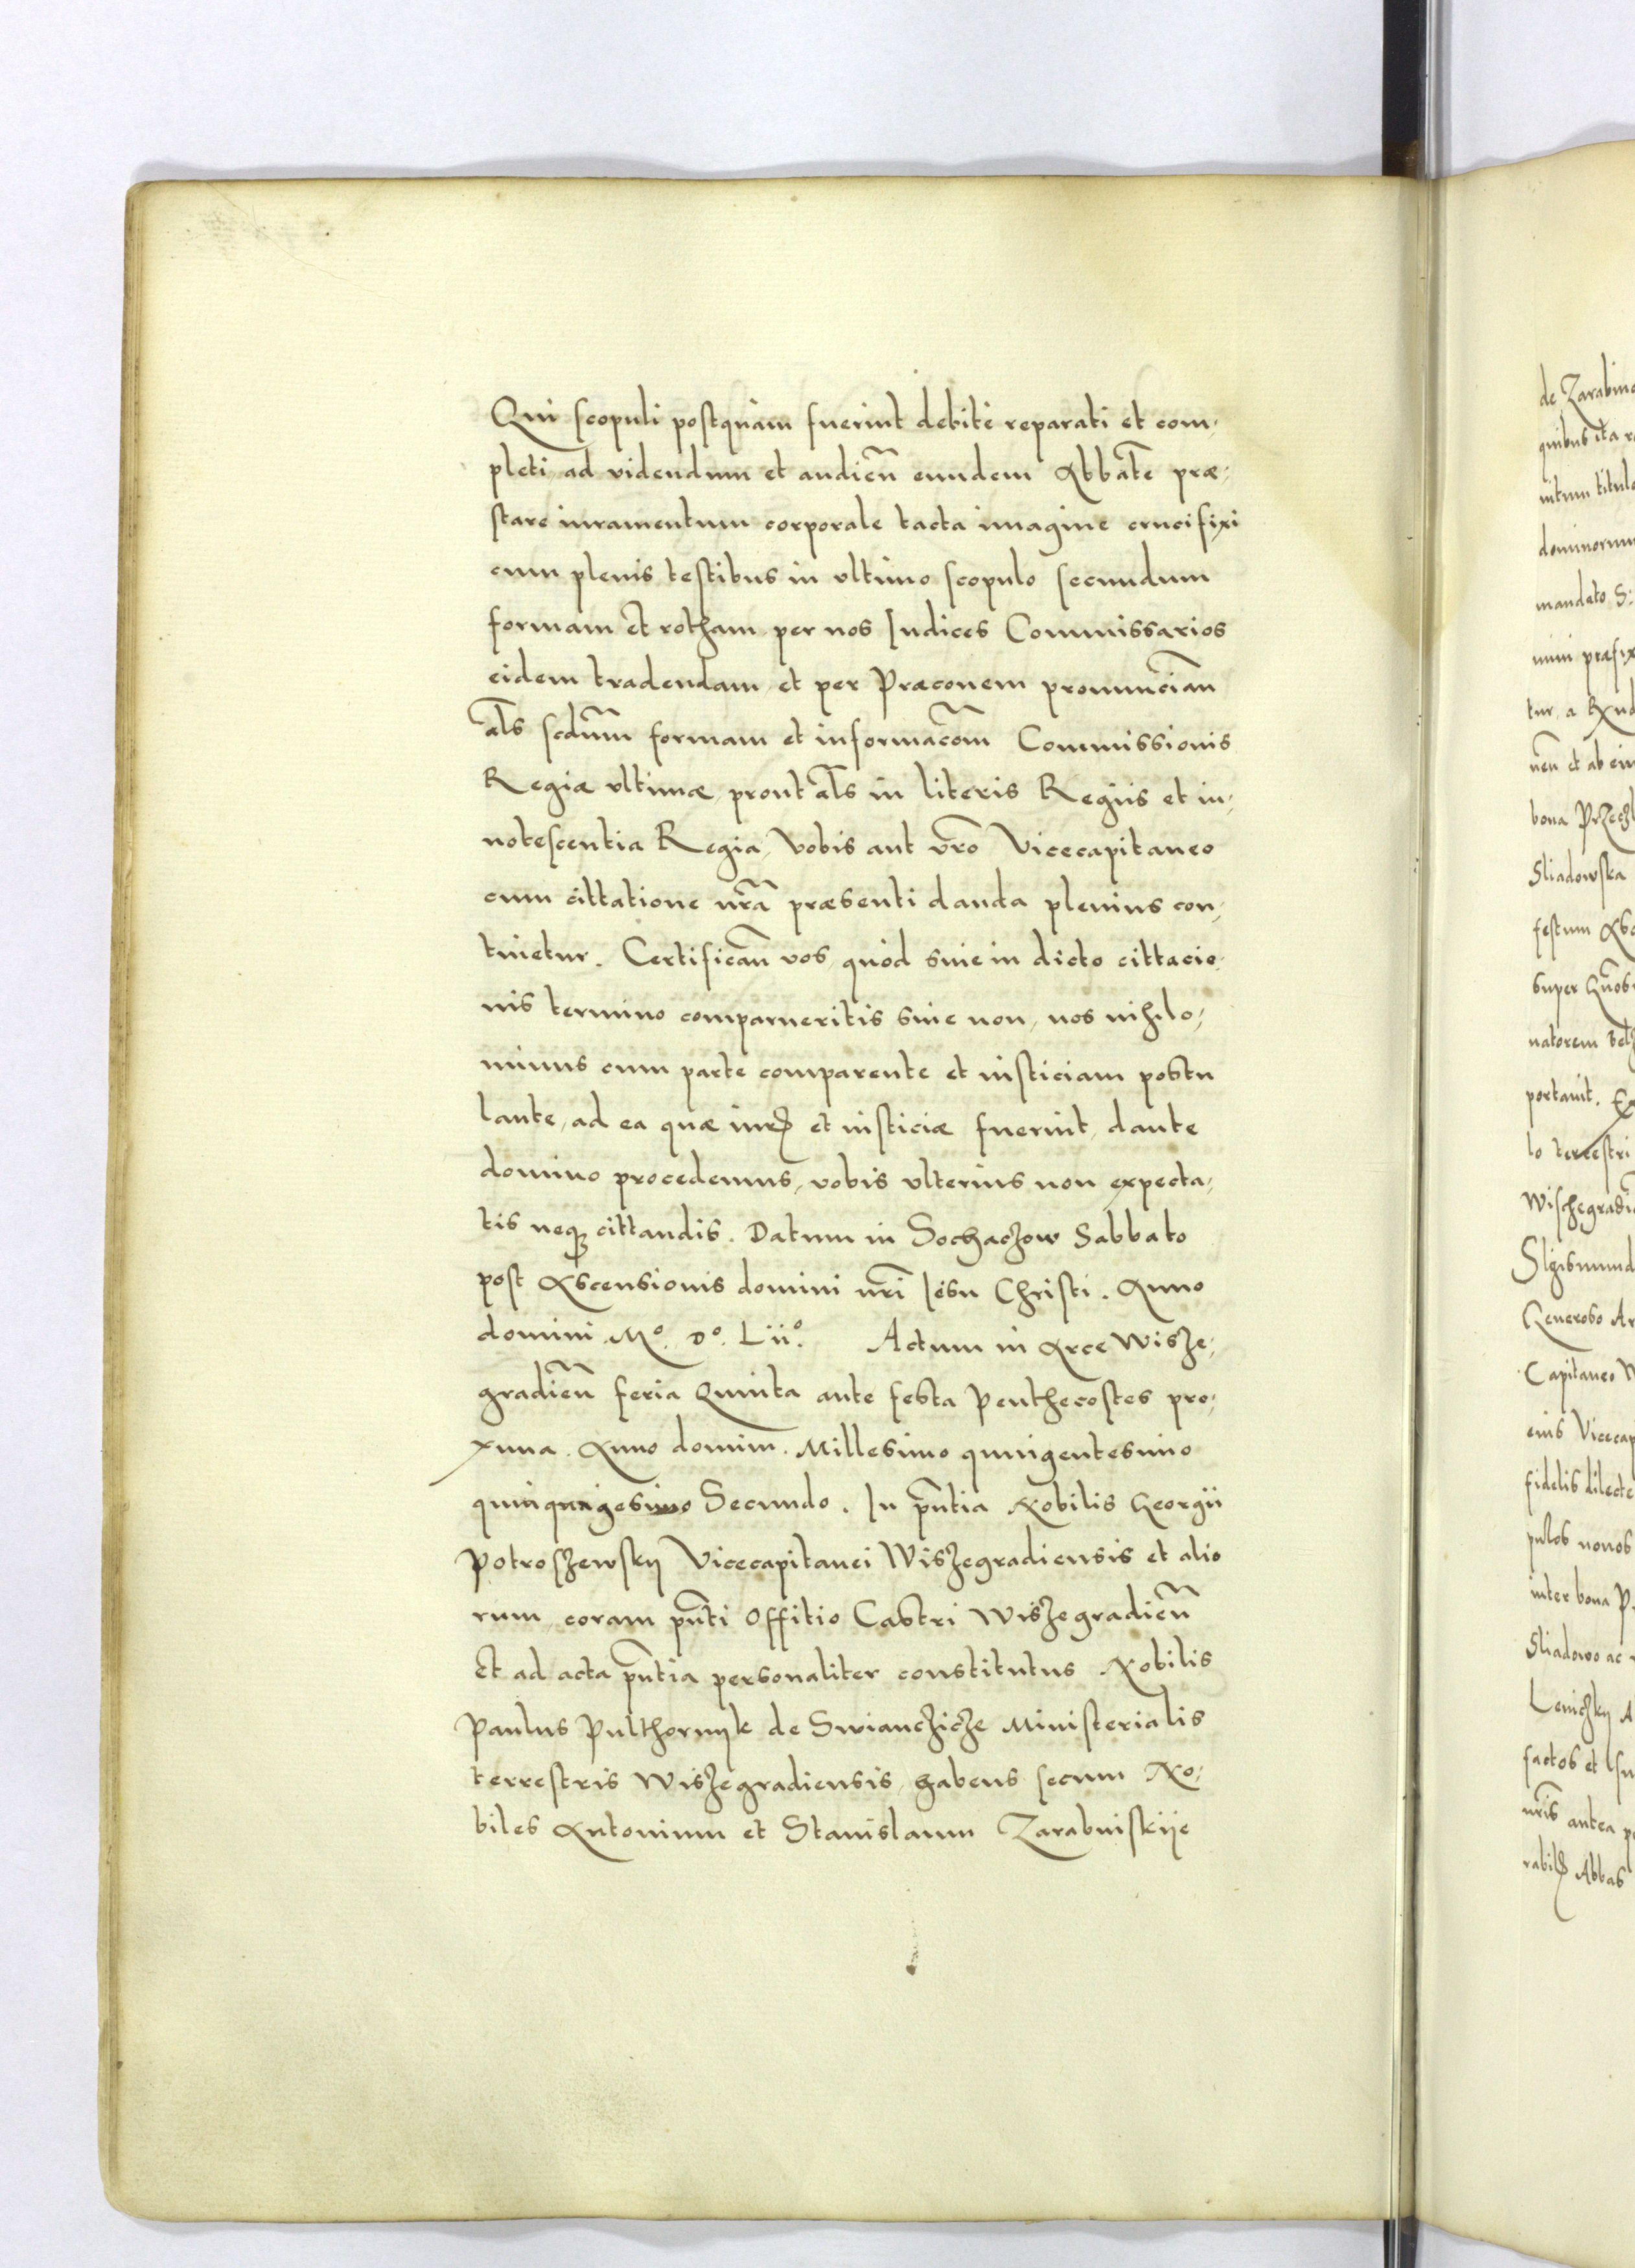 Qui scopuli postquàm fuerint debitè reparati et com,
pleti, ad videndum et audieñ eundem Abbatẽ præ,
stare iuramentum corporale tacta imagine crucifixi
cum plenis testibus in ultimo scopulo secundum
formam et rotham, per nos Iudices Commissarios
eidem tradendam, et per Præconem pronunciañ
als̃ scdũm formam et informacõm Commissionis
Regiæ ultimæ, prout als̃ in literis Regiis et in,
notescentia Regia, Vobis aut vr̃o Vicecapitaneo
cum cittatione nr̃a præsenti danda plenius con,
tinetur. Certificañ vos, quòd siue in dicto cittacio,
nis termino comparueritis siue non, nos nihilo,
minus cum parte comparente et iusticiam postu
lante, ad ea quæ iuris et iusticiæ fuerint, dante
domino procedemus, vobis ulterius non expecta,
tis neq; cittandis. Datum in Sochaczow Sabbato
post Ascensionis domini nr̃i Iesu Christi. Anno
domini M° D° Lii° Actum in Arce Wisze,
gradieñ feria Quinta ante festa Penthecostes pro,
xima. Anno domini. Millesimo quingentesimo
quinquagesimo Secundo. In pñtia Nobilis Georgii
Potroszewsky Vicecapitanei Wiszegradiensis et alio
rum, coram pñti Offitio Castri Wiszegradieñ
Et ad acta pñtia personaliter constitutus Nobilis
Paulus Pulthornyk de Swianczicze Ministerialis
terrestris Wiszegradiensis, habens secum No,
biles Antonium et Stanislaum Zarabinskije
de Zarabino
quibus ita
nitum titulo
dominorum
mandato S:
mini præfix
tur, a
et ab
bona Przecz
Sliadowska
festum
super
natorem
portauit.
lo terrestri
Wischegradi
Sigismund
Generoso Ar
Capitaneo W
eius Vicecap
fidelis dilecte
pulos nouos
inter bona P
Sliadowo ac
Lenczky A
factos et
nr̃is antea
Abbas